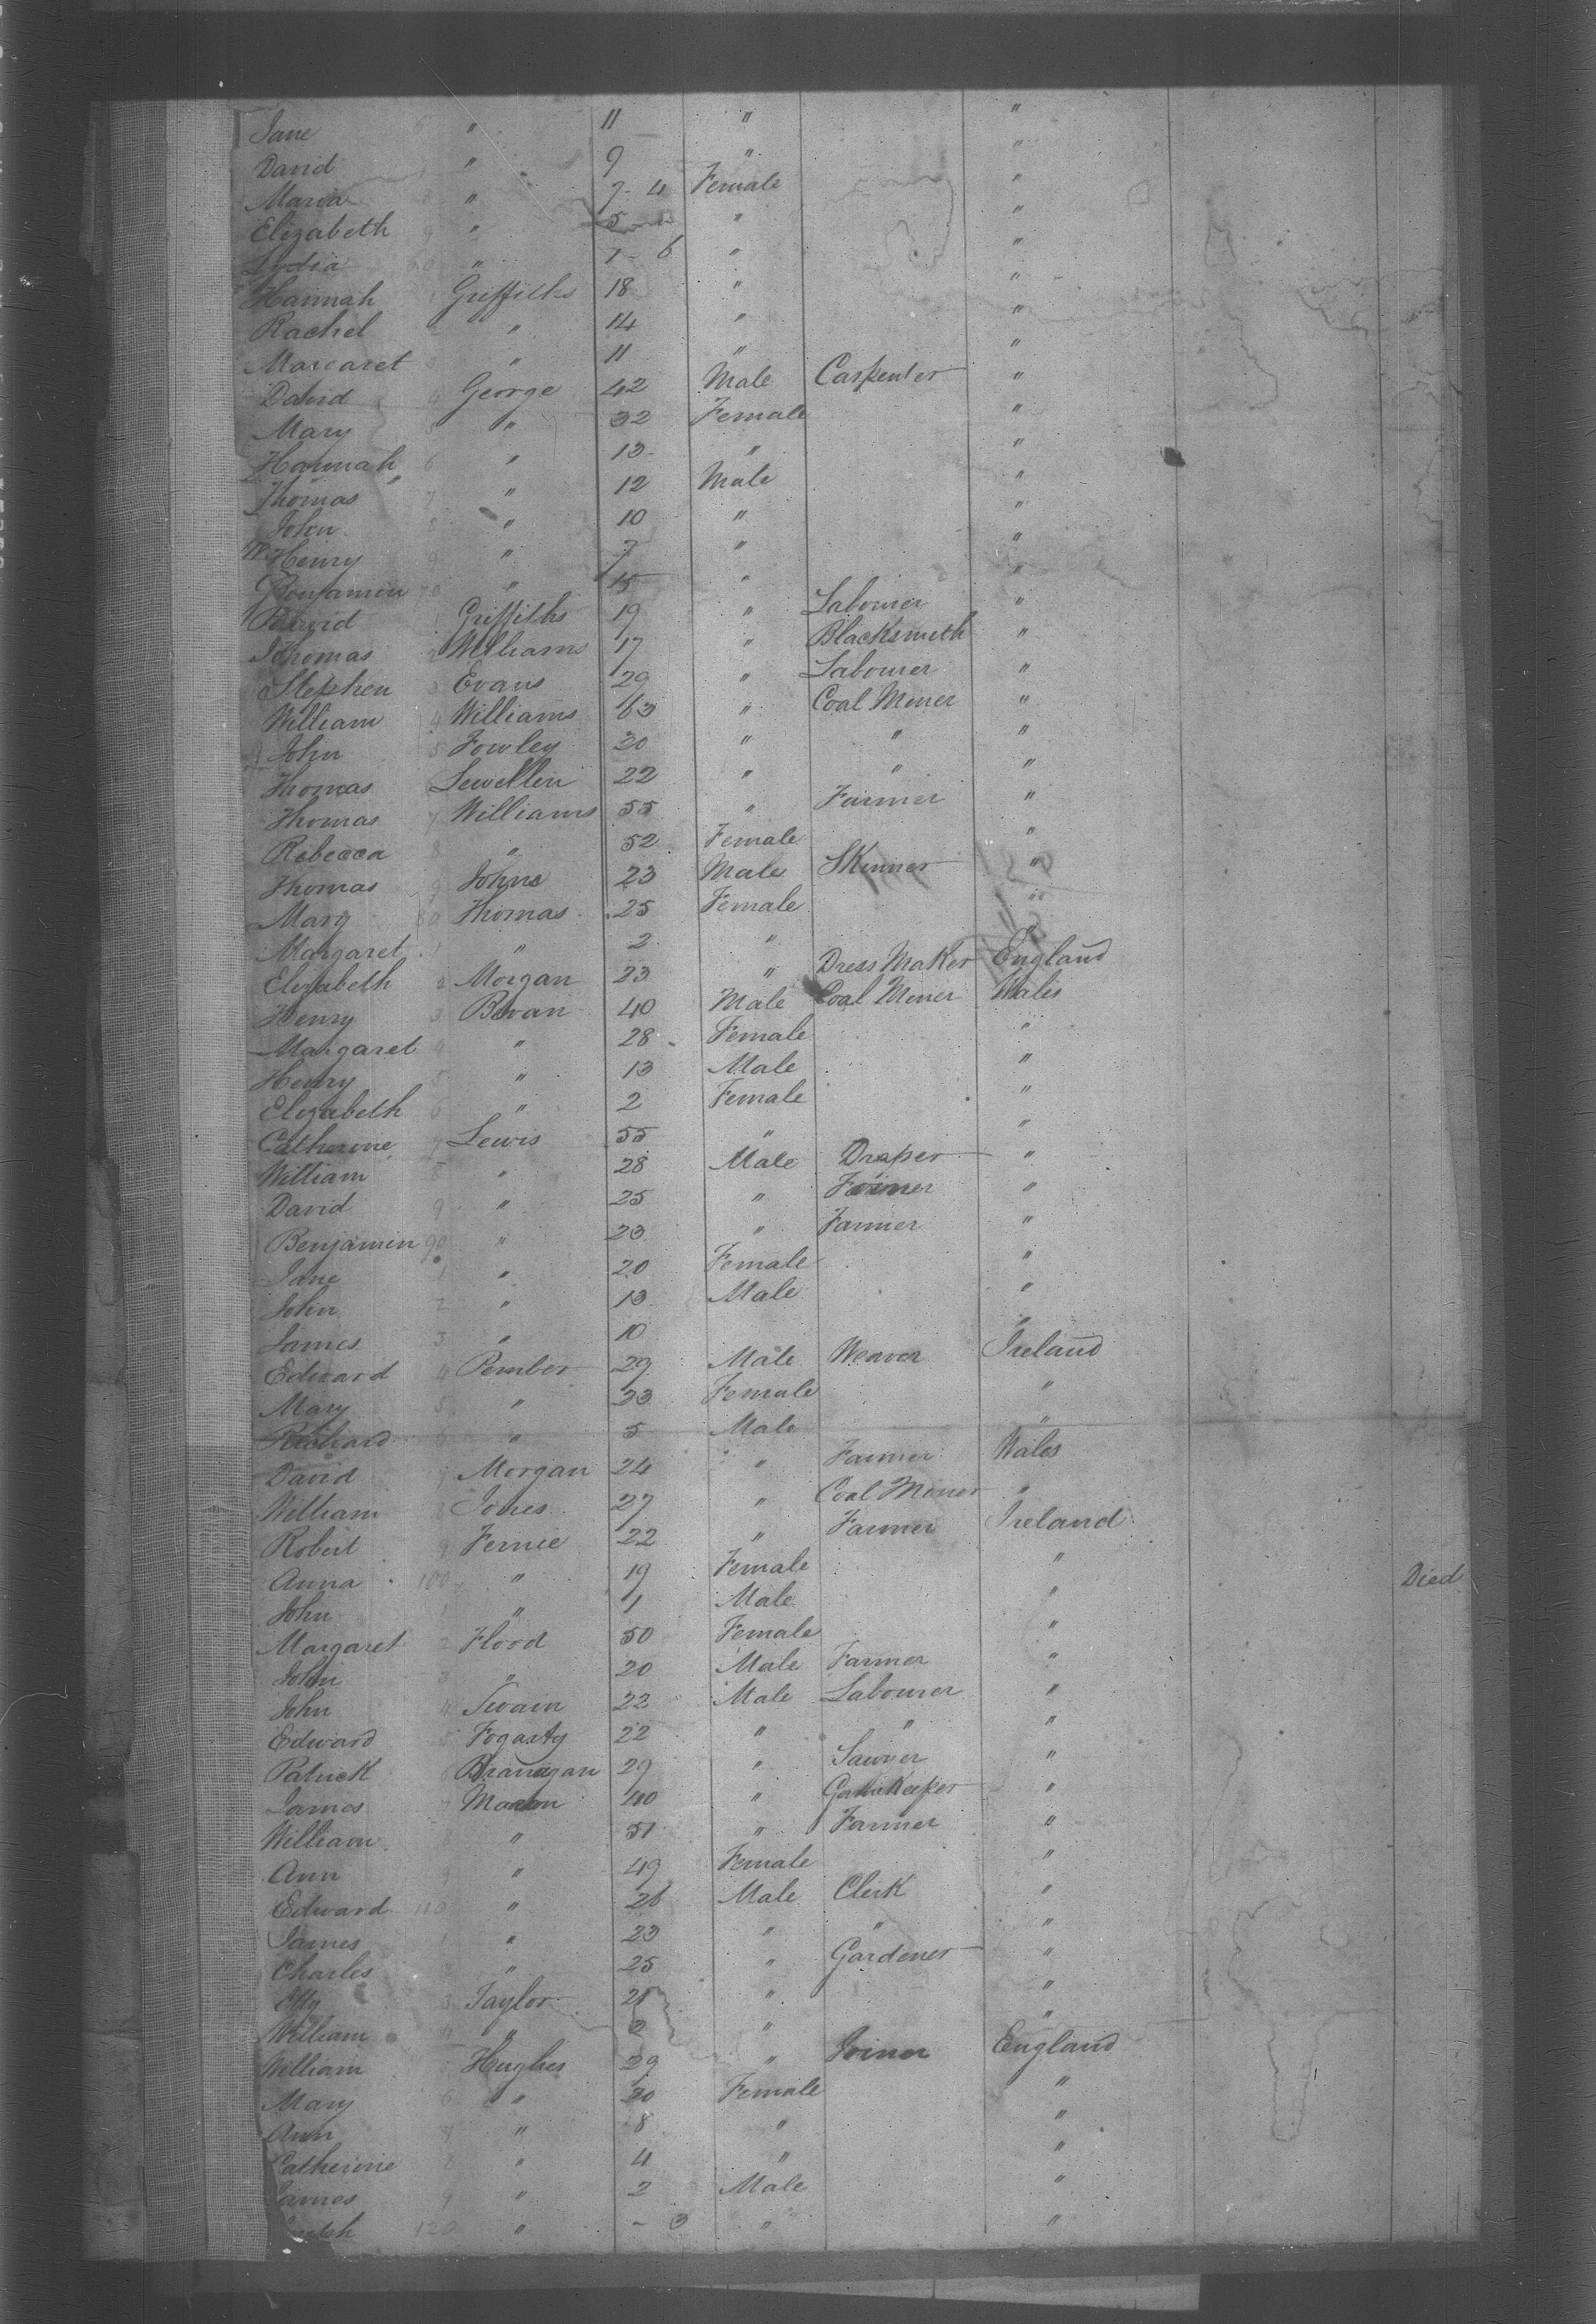 Jane 6 " 11 " "
David " 9 " "
Maria 8 " 7-4 Female "
Elizabeth 9 " 5 " "
Lydia 60 " 1-6 " "
Hannah 1 Griffiths 18 " "
Rachel 2 " 14 " "
Margaret 3 " 11 " "
David 4 George 42 Male Carpenter "
Mary 5 " 32 Female "
Hannah 6 " 13 " "
Thomas 7 " 12 Male "
John 8 " 10 " "
Henry 9 " 7 " "
Benjamin 70 " 15 " "
David 1 Griffiths 19 " Labourer "
Thomas 2 Williams 17 " Blacksmith "
Stephen 3 Evans 29 " Labourer "
William 4 Williams 63 " Coal Miner "
John 5 Fowley 20 " " "
Thomas 6 Lewellen 22 " " "
Thomas 7 Williams 55 " Farmer "
Rebecca 8 " 52 Female "
Thomas 9 Johns 23 Male Skinner "
Mary 80 Thomas 25 Female "
Margaret 1 " 2 " "
Elizabeth 2 Morgan 23 " Dress Maker England
Henry 3 Bevan 40 Male Coal Miner Wales
Margaret 4 " 28 Female "
Henry 5 " 13 Male "
Elizabeth 6 " 2 Female "
Catherine 7 Lewis 55 " "
William 8 " 28 Male Draper "
David 9 " 25 " "
Benjamin 90 " 23 " Farmer "
Jane 1 " 20 Female "
John 2 " 13 Male "
James 3 " 10 "
Edward 4 Pember 29 Male Weaver Ireland
Mary 5 " 33 Female "
Richard 6 " 5 Male "
David 7 Morgan 24 " Farmer Wales
William 8 Jones 27 " Coal Miner "
Robert 9 Fernie 22 " Farmer Ireland
Anna 100 " 19 Female "
John 1 " 1 Male " Died
Margaret 2 Flood 50 Female "
John 3 " 20 Male Farmer "
John 4 Swain 22 Male Labourer "
Edward 5 Fogarty 22 " " "
Patrick 6 Branagan 29 " Sawyer "
James 7 40 " GameKeeper "
William " 51 " Farmer "
Ann 9 " 49 Female "
Edward 110 " 26 Male Clerk "
James 1 " 23 " " "
Charles 2 " 25 " Gardener "
3 Taylor 21 " "
William 4 " 2 " "
William 5 Hughes 29 " Joiner England
Mary 6 " 30 Female "
Ann 7 " 8 " "
Catherine 8 " 4 " "
James 9 " 2 Male "
120 " - 3 " "